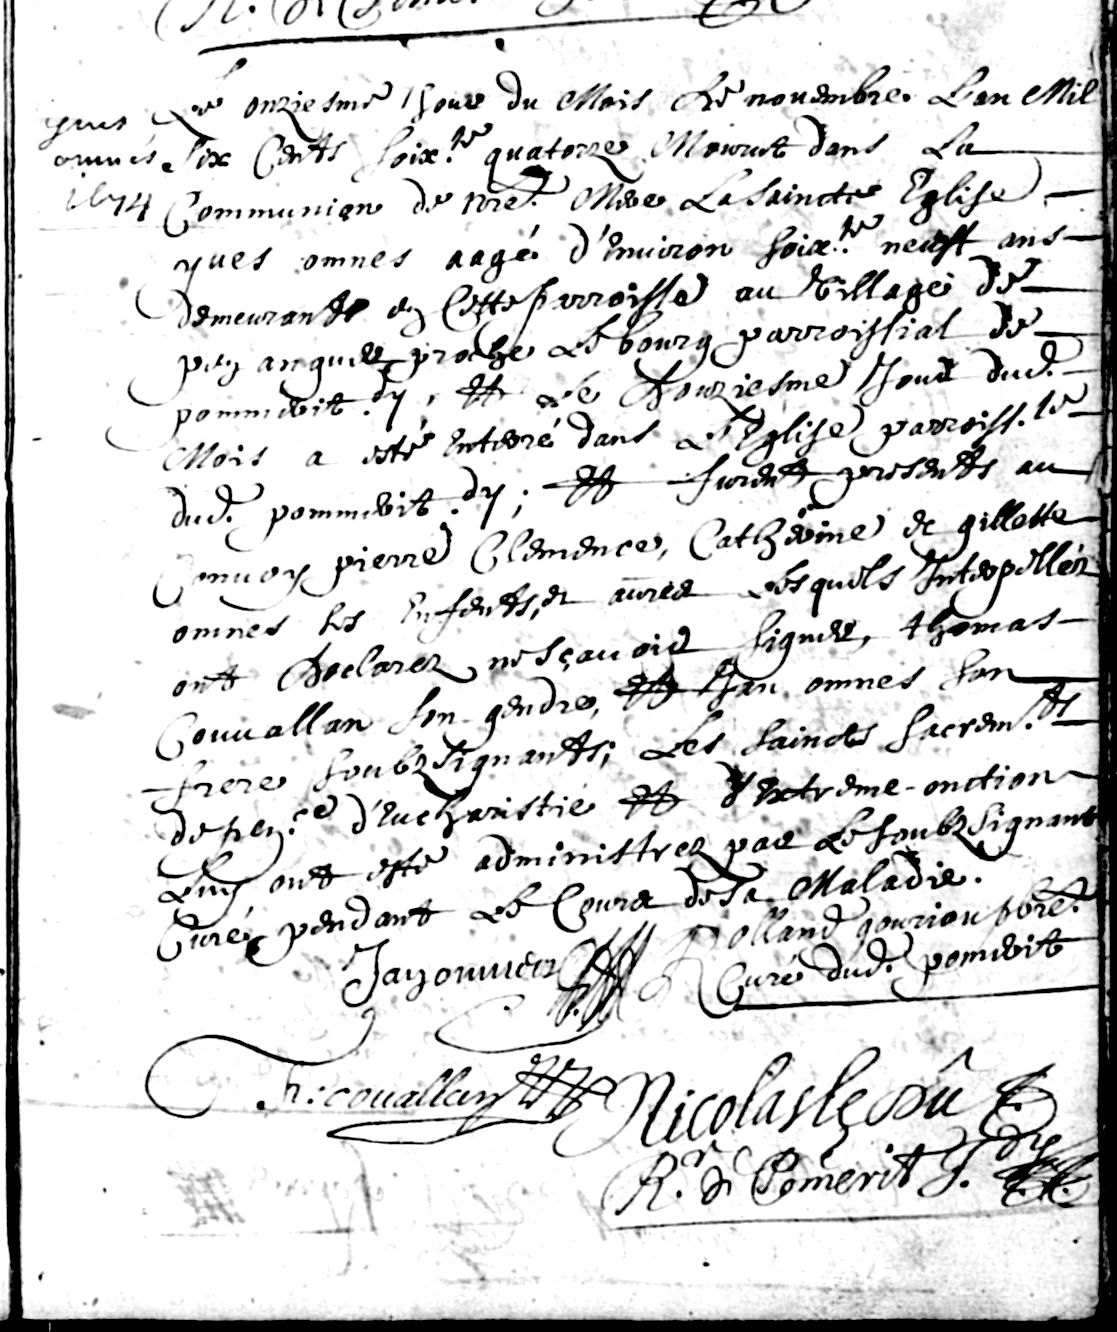 R. de Pomerit
Le onziesme Jour du Mois de novembre. L'an Mil
yves
omnes
1674
Six Cents soix.te quatorze Mourut dans La
Communion de nre. Mere La Saincte Eglise
yves omnes aagé d'Environ soix.te neuff ans
demeurant en Cette parroisse au Village de
proche Le bourg parroissial de
pommerit .dy, Et Le Douziesme Jour dud.
Mois a esté Enterré dans L'Eglise parroiss.le
dud. pommerit .dy; Et furent presents au
Convoy pierre Clemence, Catherine et gillette
omnes ses Enfents, et aurees Lesquels Interpellez
ont Declarez ne sçavoir signer, thomas
Couvallan son gendre, Et Jan omnes son
frere soubz signants; Les saincts sacrem.ts
de pen.ce d'Eucharistie Et d'Extreme-onction
Luy ont esté administrez par Le soubz signant
Curé, pendant Le Cours de sa Maladie.
Jan omnes Rolland gouriou pbre.
Curé dud. pomerit
Th: couallan Nicolas le
R.r de Pomerit J. dy